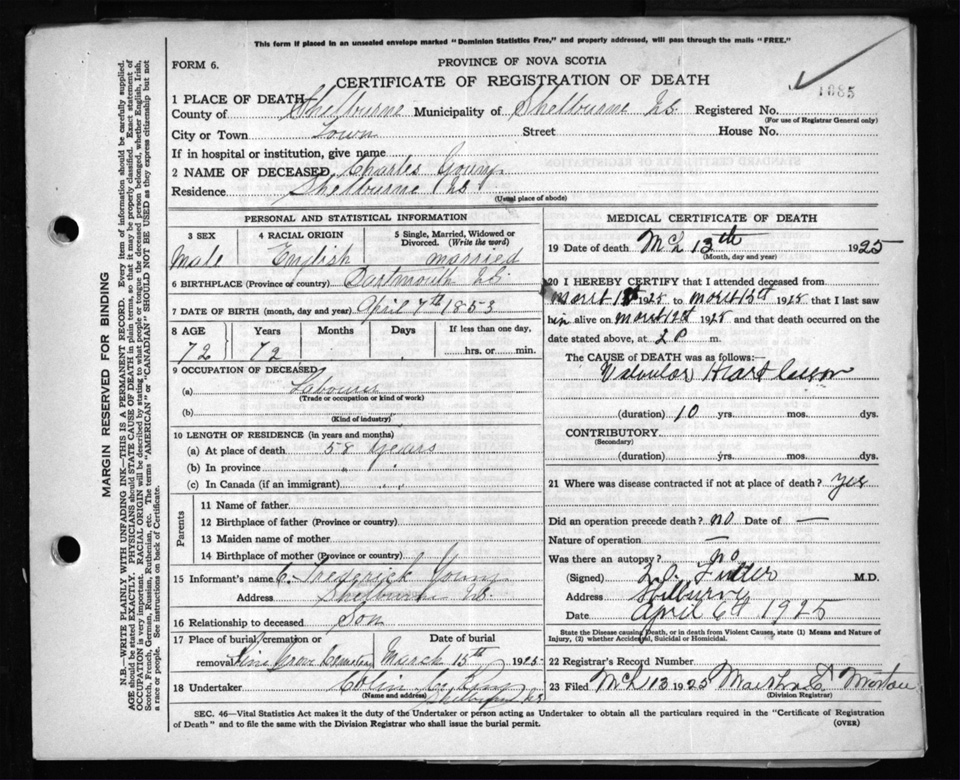 This form if placed in an unsealed envelope marked "Dominion Statistics Free," and property addressed, will pass through the mails "FREE."
PROVINCE OF NOVA SCOTIA
FORM 6.
CERTIFICATE OF REGISTRATION OF DEATH
1985
1 PLACE OF DEATH
County of Shelburne Municipality of Shelburne NS Registered No.
(For use of Registrar General only)
City or Town Town Street House No.
If in hospital or institution, give name
2 NAME OF DECEASED Charles Young
Residence Shelburne NS
(Usual place of abode)
PERSONAL AND STATISTICAL INFORMATION
3 SEX 4 RACIAL ORIGIN 5 Single, Married, Widowed or Divorced. (Write the word)
Male English married
6 BIRTHPLACE (Province or country) Dartmouth NS
7 DATE OF BIRTH (month, day and year) April 7th 1853
8 AGE Years Months Days If less than one day,
72 72 hrs. or min.
9 OCCUPATION OF DECEASED
(a) Labourer
(Trade or occupation or kind of work)
(b)
(Kind of industry)
10 LENGTH OF RESIDENCE (in years and months)
(a) At place of death 58 years
(b) In province " "
(c) In Canada (if an immigrant) " "
Parents
11 Name of father
12 Birthplace of father (Province or country)
13 Maiden name of mother
14 Birthplace of mother (Province or country)
15 Informant's name C. Frederick Young
Address Shelburne NS.
16 Relationship to deceased Son
17 Place of burial, cremation or removal Pine Grove Cemetery Date of burial March 15th 1925
18 Undertaker Colin
(Name and address) Shelburne NS
MEDICAL CERTIFICATE OF DEATH
19 Date of death Mch 13th 1925
(Month, day and year)
20 I HEREBY CERTIFY that I attended deceased from
1925 to 1925 that I last saw
him alive on 1925 and that death occurred on the
date stated above, at 2 P m.
The CAUSE OF DEATH was as follows:
Valvular Heart Lesion
(duration) 10 yrs. mos. dys.
CONTRIBUTORY
(Secondary)
(duration) yrs. mos. dys.
21 Where was disease contracted if not at place of death? Yes
Did an operation precede death? no Date of —
Nature of operation —
Was there an autopsy? no
(Signed) Fuller M.D.
Address Shelburne
Date April 6th 1925
State the Disease causing Death, or in death from Violent Causes, state (1) Means and Nature of Injury, (2) whether Accidental, Suicidal or Homicidal.
22 Registrar's Record Number
23 Filed Mch 13 1925
(Division Registrar)
SEC. 46—Vital Statistics Act makes it the duty of the Undertaker or person acting as Undertaker to obtain all the particulars required in the "Certificate of Registration
of Death" and to file the same with the Division Registrar who shall issue the burial permit.
(OVER)
MARGIN RESERVED FOR BINDING
N.B.—WRITE PLAINLY WITH UNFADING INK—THIS IS A PERMANENT RECORD. Every item of information should be carefully supplied.
AGE should be stated EXACTLY. PHYSICIANS should STATE CAUSE OF DEATH in plain terms, so that it may be properly classified. Exact statement of
OCCUPATION is very important. RACIAL ORIGIN will be described by stating to what people or tongue the deceased person belonged, whether English, Irish,
Scotch, French, German, Russian, Ruthenian, etc. The terms "AMERICAN" or "CANADIAN" SHOULD NOT BE USED as they express citizenship but not
a race or people. See instructions on back of Certificate.